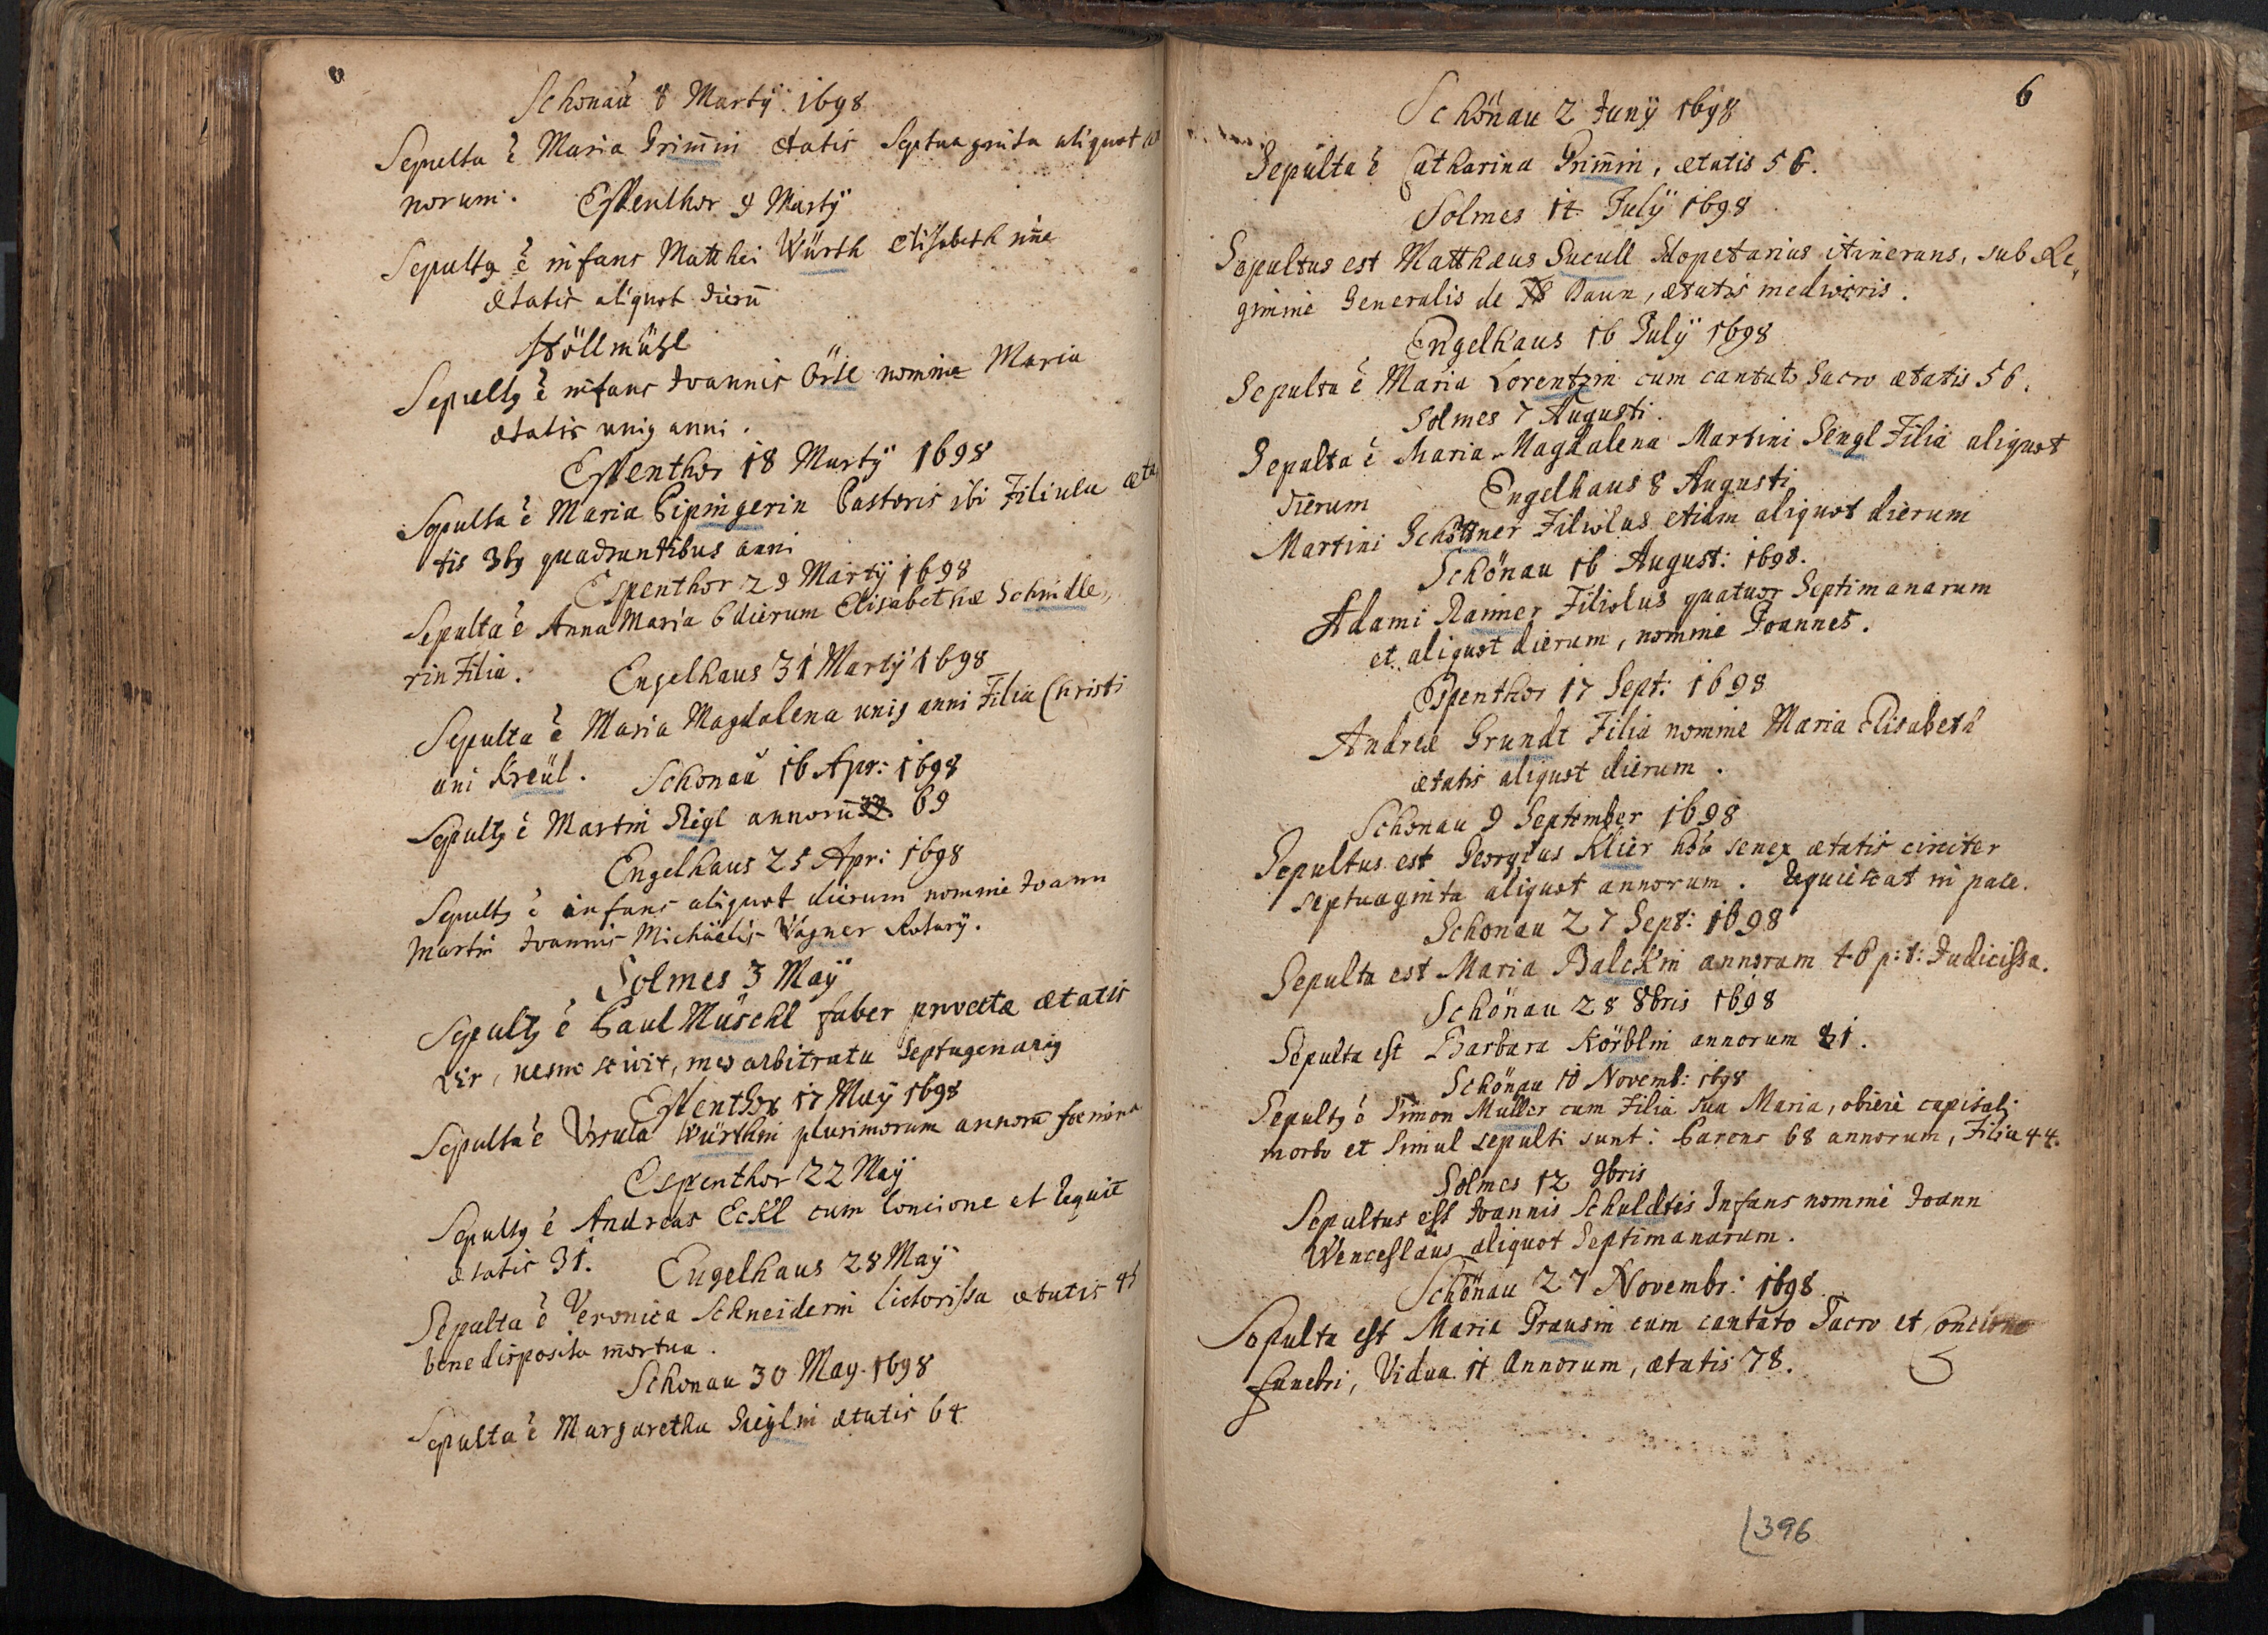 Schonaŭ 8 Martÿ 1698
Sepulta ē Maria Grim̄in ætatis Septuaginta aliquot
norum. Espenthor 9 Martÿ
Sepultq ē infans Matthei Würth Elisabeth
Ætatis aliquot dierū
Höllmühl
Sepultq ē infans Joannis Örtl nomine Maria
ætatis uniq anni.
Espenthor 18 Martÿ 1698
Sepulta ē Maria Pipingerin Pastoris ibi Filiula æta
tis 3bq quadrantibus anni
Espenthor 29 Martÿ 1698
Sepulta ē Anna Maria 6 dierum Elisabethæ Schindle„
rin Filia. Engelhaus 31 Martÿ 1698
Sepulta ē Maria Magdalena uniq anni Filia Christi
ani Kreül. Schonaŭ 16 Apr: 1698
Sepultq ē Martin Rigl annorū 69
Engelhaus 25 Apr: 1698
Sepultq ē infans aliquot dierum nomine Joann
Martin Joannis Michäelis Wagner Rotarÿ.
Solmes 3 Maÿ
Sepultq ē Paul Müschl faber provectæ ætatis
vir, nemo scivit, meo arbitratu Septugenariq
Espenthor 17 Maÿ 1698
Sepulta ē Ursula Würthin plurimorum annorū fœmina
Espenthor 22 Maÿ
Sepultq ē Andreas Eckl cum Concione et Requiē
ætatis 31. Engelhaus 28 Maÿ
Sepulta ē Veronica Schneiderin lictorissa ætatis
bene disposita mortua.
Schonau 30 May. 1698
Sepulta ē Margaretha Rieglin ætatis 64
6
Schönau 2 Junÿ 1698
Sepulta ē Catharina Grim̄in, ætatis 56.
Solmes 14 Julÿ 1698
Sepultus est Matthæus Sucull Sclopetarius itinerans, sub Re„
gimine Generalis de Daun, ætatis mediocris.
Engelhaus 16 Julÿ 1698
Sepulta ē Maria Lorentzin cum cantato Sacro ætatis 56.
Solmes 7 Augusti.
Sepulta ē Maria Magdalena Martini Sengl Filia aliquot
dierum Engelhaus 8 Augusti
Martini Schöttner Filiolus etiam aliquot dierum
Schönau 16 August: 1698.
Adami Rainer Filiolus quatuor Septimanarum
et aliquot dierum, nomine Joannes.
Espenthor 17 Sept: 1698
Andreæ Grundt Filia nomine Maria Elisabeth
ætatis aliquot dierum.
Schonau 9 September 1698
Sepultus est Georgius Klier senex ætatis circiter
septuaginta aliquot annorum. Requiescat in pace.
Schonau 27 Sept: 1698
Sepulta est Maria Balckin annorum 40 p: t: Judicissa.
Schönau 28 8bris 1698
Sepulta est Barbara Körblin annorum 81.
Schönau 10 Novemb: 1698
Sepultq ē Simon Müller cum Filia sua Maria, obierē capitali
morbo et simul sepulti sunt: Parens 68 annorum, Filia 44.
Solmes 12 9bris
Sepultus est Joannis Schuldtes Infans nomine Joann
Wenceslaus aliquot Septimanarum.
Schönau 27 Novembr: 1698.
Sepulta est Maria Prausin cum cantato Sacro et Concione
funebri, Vidua 14 Annorum, ætatis 78.
396